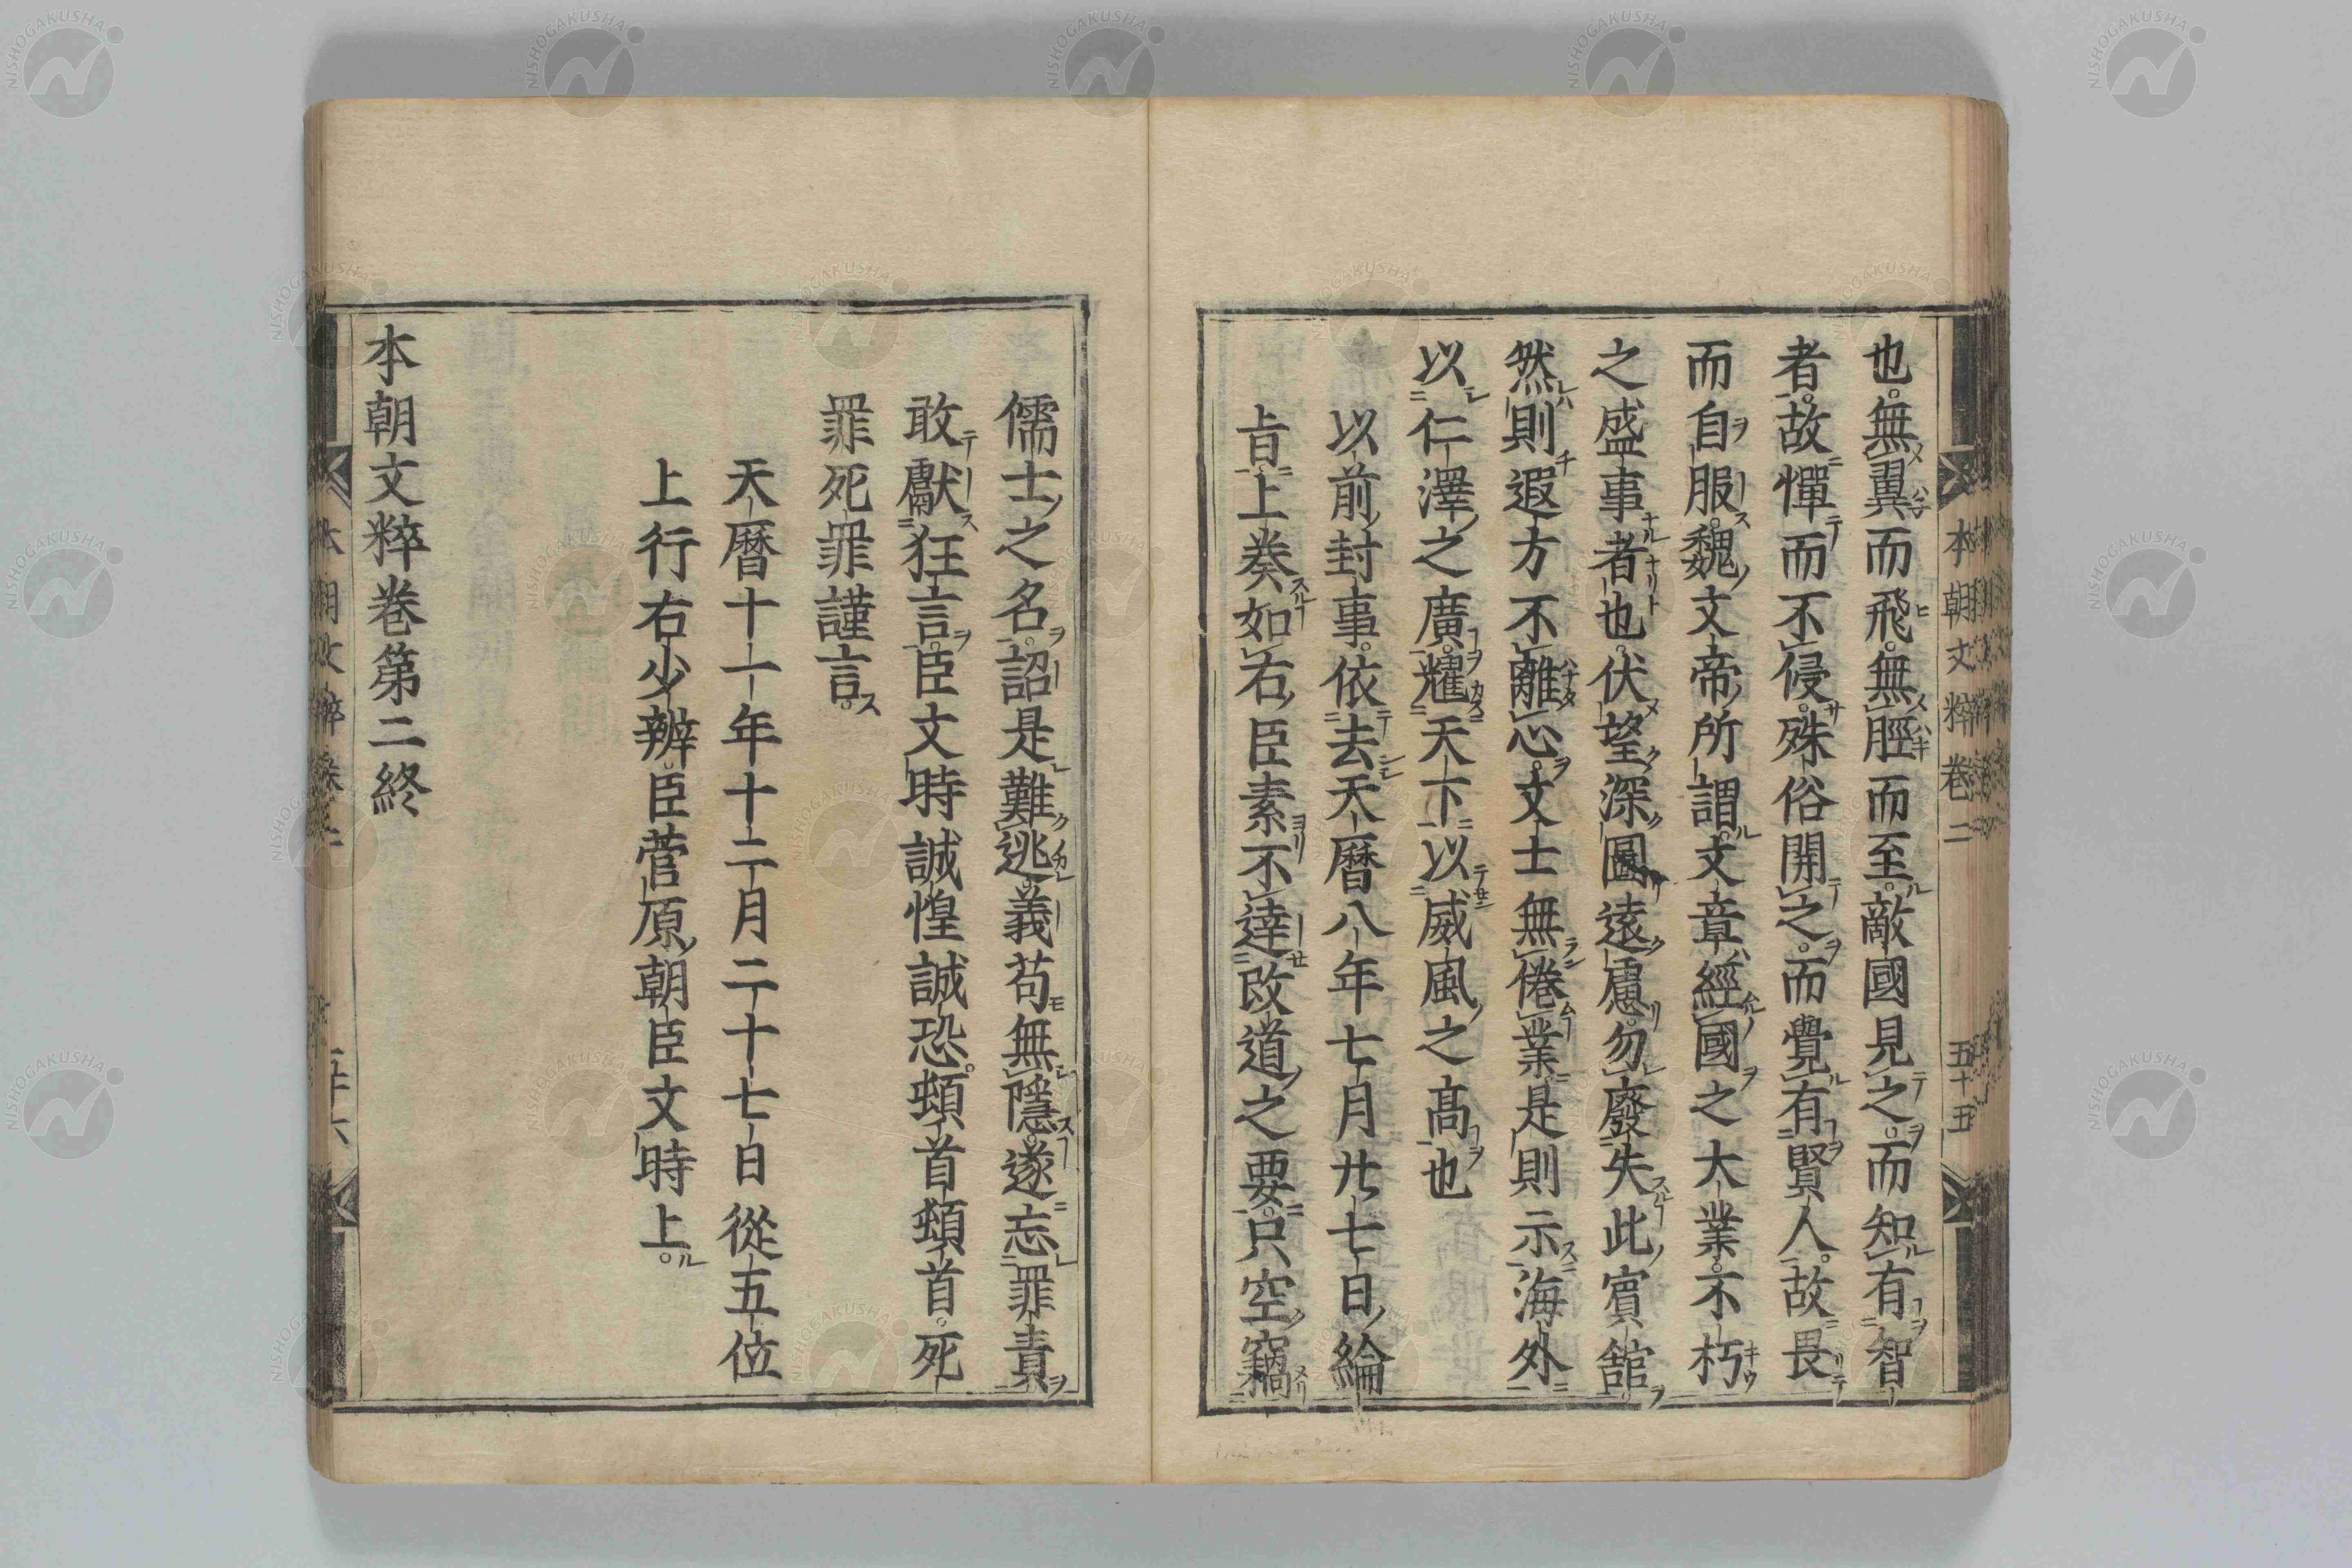 也。無翼而飛。無脛而至。敵國見之。而知有智
者。故憚而不侵。殊俗開之。而覺有賢人。故畏
而自服。魏文帝所謂。文章經國之大業。不朽
之盛事者也。伏望深圖遠慮。勿廢失此賓館
然則遐方不離心。文士無倦業是則示海外
以仁澤之廣。耀天下以威風之高也
以前封事。依去天曆八年七月廿七日綸
旨上奏如右臣素不達政道之要。只空竊
本朝文粹卷二
五十五
儒士之名。詔是難逃。義苟無隱。遂忘罪責
敢獻狂言。臣文時誠惶誠恐。頓首頓首。死
罪死罪謹言。
天曆十一年十二月二十七日從五位
上行右少辨。臣菅原朝臣文時上。
本朝文粹卷第二終